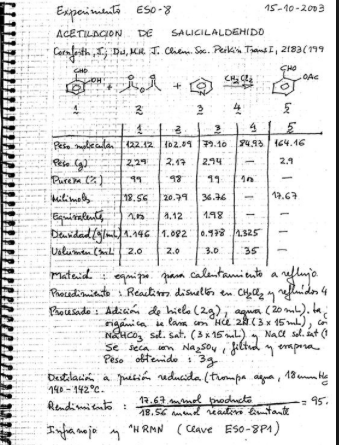 Experimento ESO-8 15-10-2003
ACETILACION DE SALICILALDEHIDO
Cornforth, J; Du, M.H. J. Chem. Soc. Perkin Trans I, 2183 (199
CHO OH + O O O + N CH2Cl2 CHO OAc
1 2 3 4 5
1 2 3 4 5
Peso molecular 122.12 102.09 79.10 84.93 164.16
Peso (g) 2,29 2.17 2.94 — 2.9
Pureza (%) 99 98 99 100 —
Milimoles 18.56 20.79 36.76 — 17.67
Equivalentes 1.00 1.12 1.98 — —
Densidad (g/mL) 1.146 1.082 0.978 1.325 —
Volumen (mL) 2.0 2.0 3.0 35 —
Material : equipo para calentamiento a reflujo
Procedimiento : Reactivos disueltos en CH2Cl2 y refluidos 4
Procesado : Adición de hielo (2g), agua (20 mL). La
orgánica se lava con HCl 2N (3 x 15 mL), co
NaHCO3 sol. sat. (3 x 15 mL) y NaCl sol. sat (1
Se seca con Na2SO4, filtra y evapora.
Peso obtenido : 3g
Destilación a presión reducida (trompa agua, 18 mmHg
140-142°C.
Rendimiento : 17.67 mmol producto / 18.56 mmol reactivo limitante = 95.
Infrarrojo y 1H RMN (Clave ESO-8P1)